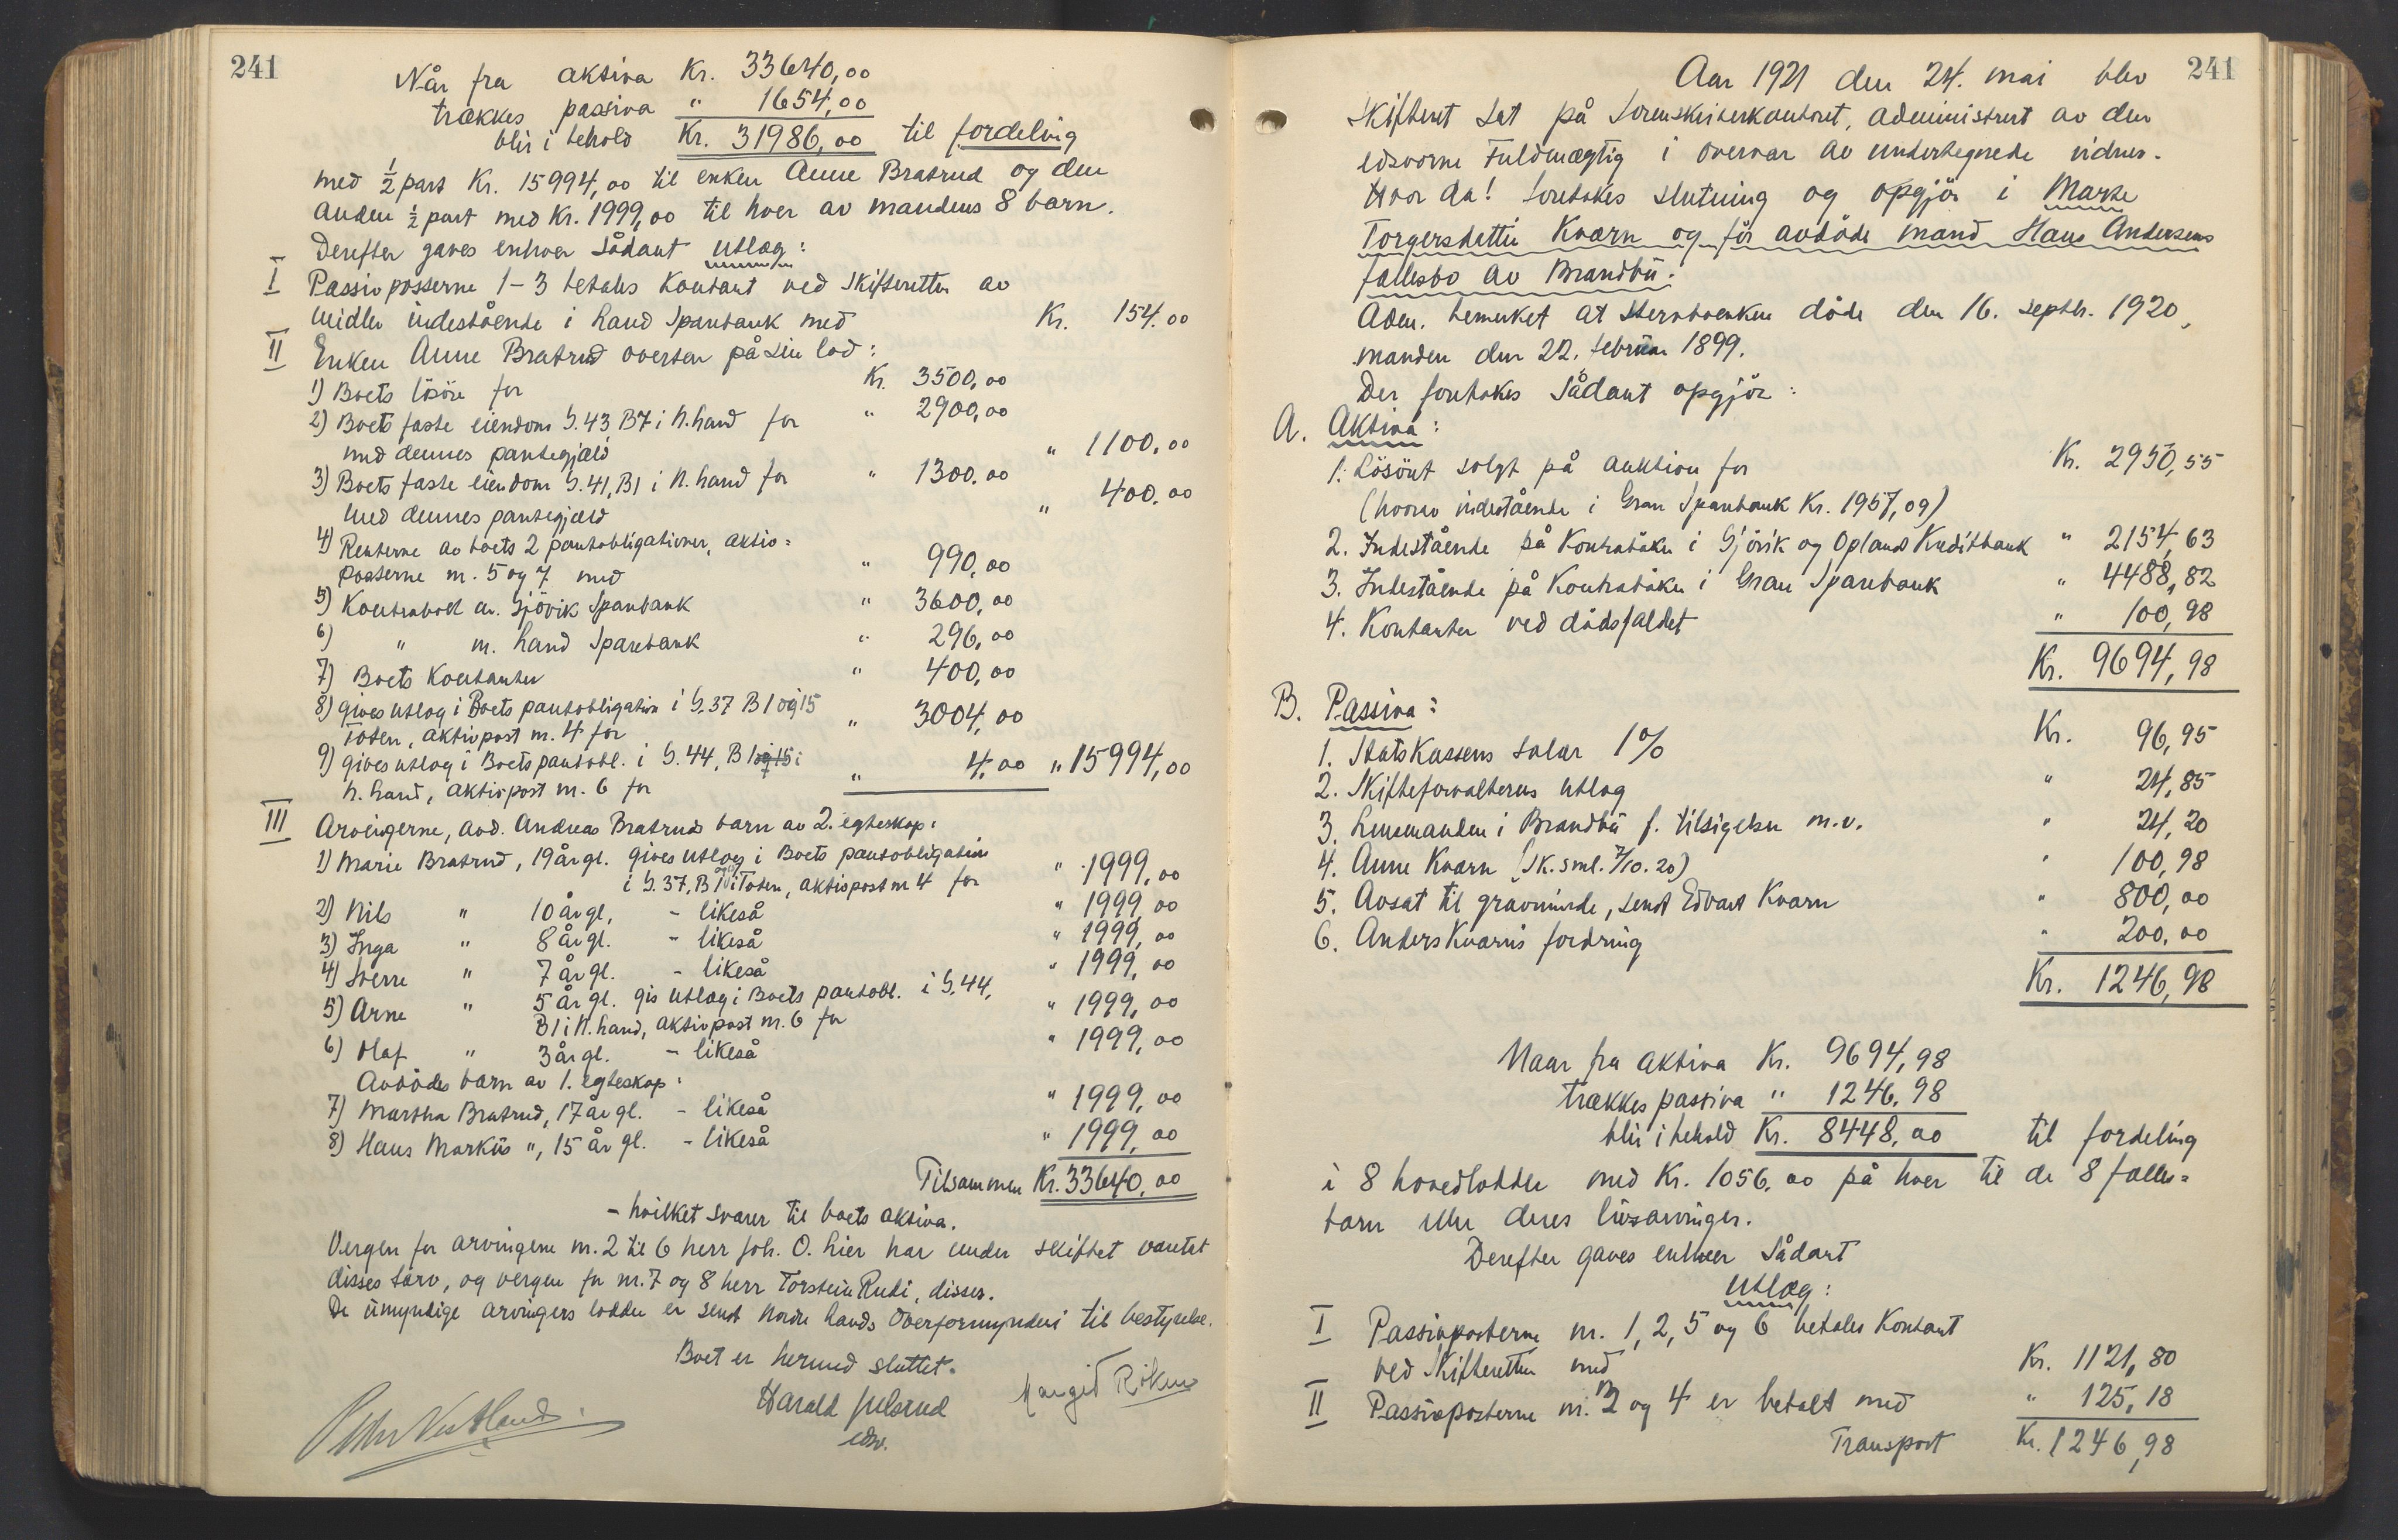 241
Når fra aktiva Kr. 33640,00
trækkes passiva " 1654,00
blir i behold Kr. 31986,00 til fordeling
med ½ part Kr. 15994,00 til enken Anne Bratrud og den
anden ½ part med Kr. 1999,00 til hver av mandens 8 barn.
Derefter gaves enhver sådant utlæg:
I Passivposterne 1-3 betales kontant ved skifteretten av
midler indestående i Land Sparebank med Kr. 154.00
II Enken Anne Bratrud overtar på sin lod:
1) Boets lösöre for Kr. 3500,00
2) Boets faste eiendom G.43 B7 i N. Land for " 2900,00
med dennes pantegjæld " 1100,00
3) Boets faste eiendom G.41, B1 i N. Land for " 1300,00
med dennes pantegjæld " 400,00
4) Renterne av boets 2 pantobligationer, aktiv=
posterne nr. 5 og 7 med " 990,00
5) Kontrabok nr. Gjövik Sparebank " 3600,00
6) " nr. Land Sparebank " 296,00
7) Boets kontanter " 400,00
8) gives utlæg i Boets pantobligation i G.37 B1 og 15
Toten, aktivpost nr. 4 for " 3004,00
9) gives utlæg i Boets pantobl. i G.44, B1 og 15 i
N. Land, aktivpost nr. 6 for " 4,00 " 15994,00
III Arvingerne, avd. Andreas Bratruds barn av 2. egteskap:
1) Marie Bratrud, 19 år gl. gives utlæg i Boets pantobligation
i G.37, B1 og 15 i Toten, aktivpost nr 4 for " 1999,00
2) Nils " 10 år gl. - likeså " 1999,00
3) Inga " 8 år gl. - likeså " 1999,00
4) Sverre " 7 år gl. - likeså " 1999,00
5) Arne " 5 år gl. gis utlæg i Boets pantobl. i G.44,
B1 i N. Land, aktivpost nr. 6 for " 1999,00
6) Olaf " 3 år gl. - likeså " 1999,00
Avdödes barn av 1. egteskap:
7) Martha Bratrud, 17 år gl. - likeså " 1999,00
8) Hans Markus ", 15 år gl. - likeså " 1999,00
Tilsammen Kr. 33640,00
- hvilket svarer til boets aktiva.
Vergen for arvingerne nr. 2 til 6 herr Joh. O. Lier har under skiftet varetat
disses tarv, og vergen for nr. 7 og 8 herr Torstein Rudi, disses.
De umyndige arvingers lodder er sendt Nordre Lands Överformynderi til bestyrelse.
Boet er hermed sluttet.
Harald Julsrud
edsv.
Margit Röken
241
Aar 1921 den 24. mai blev
skifteret sat på Sorenskriverkontoret, administrert av den
edsvorne Fuldmægtig i overvær av undertegnede vidner.
Hvor da! foretokes slutning og opgjör i Marte
Torgersdatter Kværn og för avdöde mand Hans Andersens
fællesbo av Brandbu.
Adm. bemerket at sterboenken döde den 16. septbr. 1920,
manden den 22. februar 1899.
Der foretokes sådant opgjör:
A. Aktiva:
1. Lösöret solgt på auktion for Kr. 2950,55
(hvorav indestående i Gran Sparebank Kr. 1957,09)
2. Indestående på Kontrabåken i Gjövik og Oplands Kreditbank " 2154,63
3. Indestående på Kontrabåken i Gran Sparebank " 4488,82
4. Kontanter ved dödsfaldet " 100,98
Kr. 9694,98
B. Passiva:
1. Statskassens salær 1% Kr. 96,95
2. Skifteforvalterens utlæg " 24,85
3. Lensmanden i Brandbu f. tilsigelser m.v. " 24,20
4. Anne Kværn (Sk.sml. 7/10.20) " 100,98
5. Avsat til gravminde, sendt Edvart Kværn " 800,00
6. Anders Kværns fordring " 200,00
Kr. 1246,98
Naar fra aktiva Kr. 9694,98
trækkes passiva " 1246,98
blir i behold Kr. 8448,00 til fordeling
i 8 hovedlodder med Kr. 1056,00 på hver til de 8 fælles=
barn eller deres livsarvinger.
Derefter gaves enhver sådant
utlæg:
I Passivposterne nr. 1, 2, 5 og 6 betales kontant
ved Skifteretten med Kr. 1121,80
II Passivposterne nr. 3 og 4 er betalt med " 125,18
Transport Kr. 1246,98